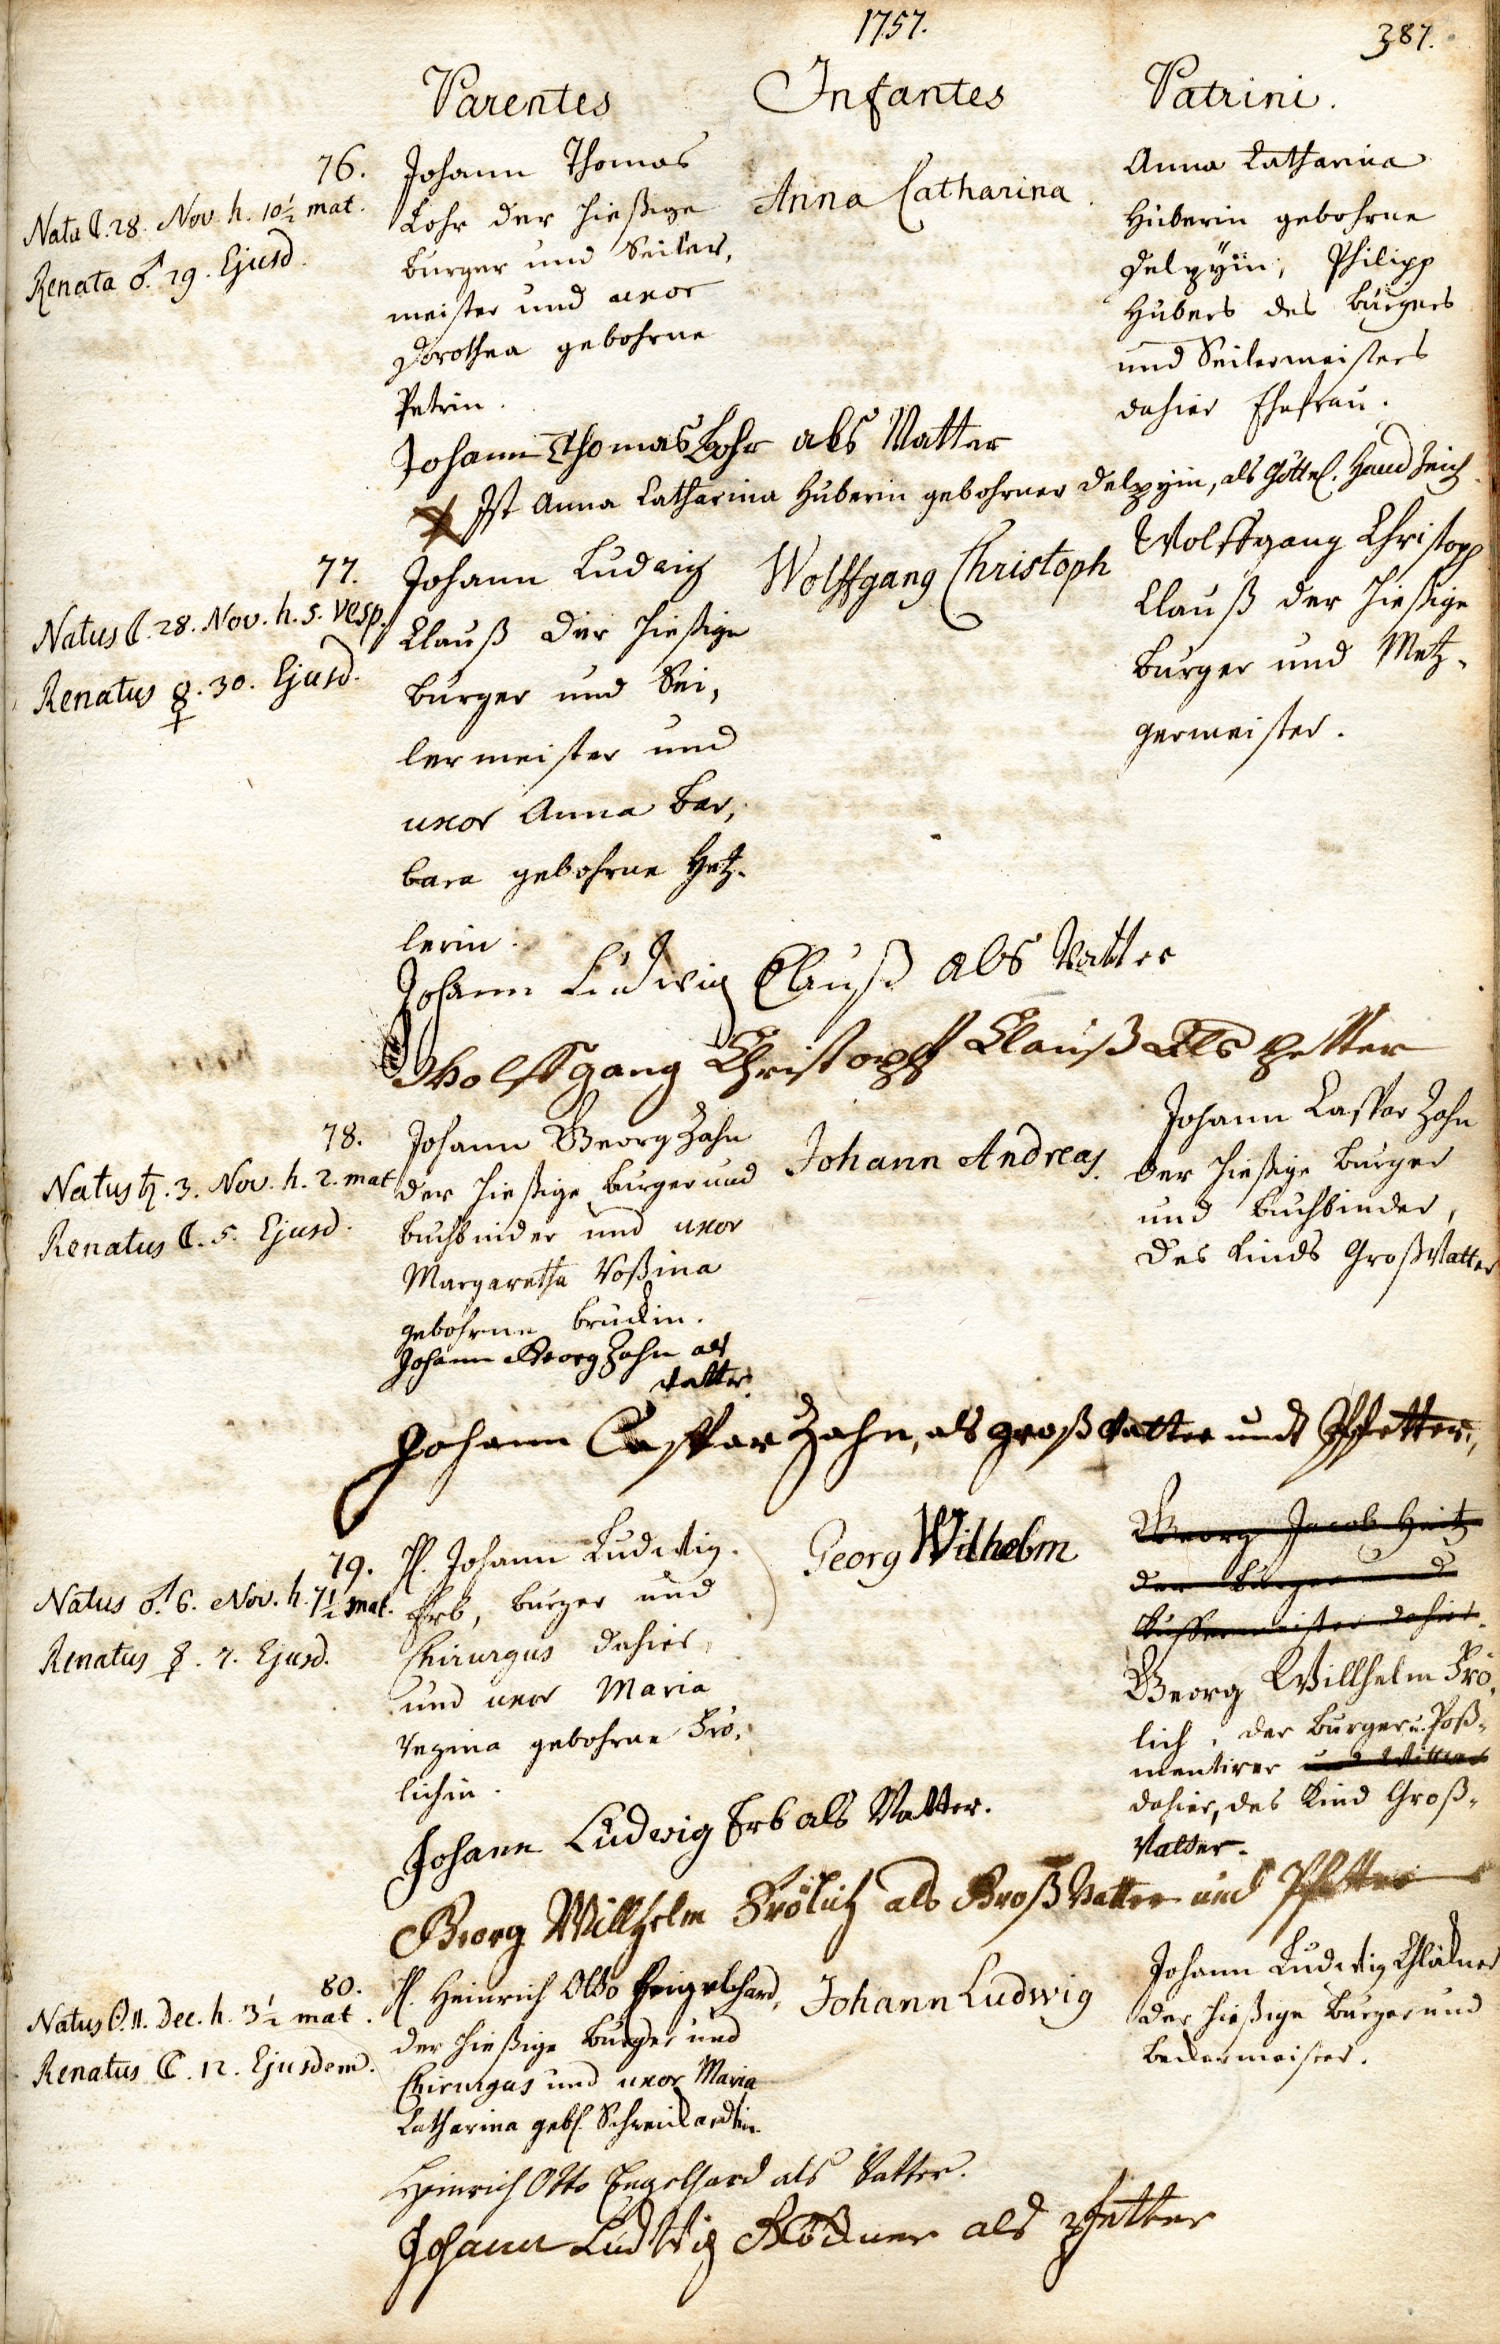 1757.
387.
Parentes
Infantes
Patrini.
76.
Natu ☾. 28. Nov. h. 10½ mat.
Renata ♂. 29. Ejusd.
Johann Thomas
Lohr der hießige
burger und Seiler,
meister und uxor
Dorothea gebohrne
Petrin.
Anna Catharina
Anna Catharina
Huberin gebohrne
Delpyin, Philipp
Hubers des burgers
und Seilermeisters
dahier Ehefrau.
Johann Thomas Lohr als Vatter
Ist Anna Catharina Huberin gebohrner Delpyin, als Göttel. Handzeich.
77.
Natus ☾. 28. Nov. h. 5. vesp.
Renatus ☿. 30. Ejusd.
Johann Ludwig
Clauß der hießige
burger und Sei,
lermeister und
uxor Anna Bar,
bara gebohrne Hetz-
lerin.
Wolffgang Christoph
Wolffgang Christoph
Clauß der hießige
burger und Metz-
germeister.
Johann Ludwig Clauß als Vatter
Wolffgang Christopff Clauß als petter
78.
Natus ♄. 3. Nov. h. 2. mat
Renatus ☾. 5. Ejusd.
Johann Georg Zahn
der hießige burger und
buchbinder und uxor
Margaretha Roßina
gebohrne Bruckin.
Johann Georg Zahn als
Vatter.
Johann Andreas.
Johann Caspar Zahn
der hießige burger
und buchbinder,
des Kinds Großvatter
Johann Caspar Zahn, als groß Vatter undt Pfetter,
79.
Natus ♂. 6. Nov. h. 7½ mat.
Renatus ☿. 7. Ejusd.
H. Johann Ludwig
Erb, burger und
Chirurgus dahier,
und uxor Maria
Regina gebohrne Frö-
lichin.
Georg Wilhelm
Georg Jacob Heitz
der burger und
Küffermeister dahier.
Georg Willhelm Frö,
lich, der burger u. Poß-
mentirer und
dahier, des Kind Groß-
Vatter.
Johann Ludwig Erb als Vatter.
Georg Willhelm Frölich als Groß Vatter und Pfetter
80.
Natus ☉. 11. Dec. h. 3½ mat.
Renatus ☾. 12. Ejusdem.
H. Heinrich Otto Engelhard,
der hießige burger und
Chirurgus und uxor Maria
Catharina geb. Schweickardtin
Johann Ludwig
Johann Ludwig Glöckner
der hießige burger und
beckermeister.
Heinrich Otto Engelhard als Vatter.
Johann Ludwig Glöckner als pfetter